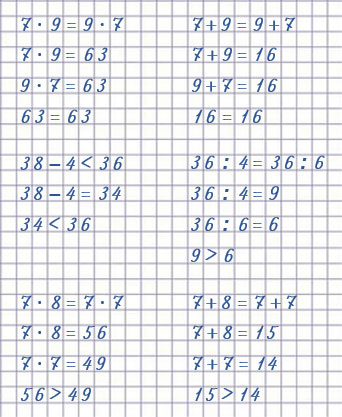 7 · 9 = 9 · 7
7 · 9 = 63
9 · 7 = 63
63 = 63
7 + 9 = 9 + 7
7 + 9 = 16
9 + 7 = 16
16 = 16
38 – 4 < 36
38 – 4 = 34
34 < 36
36 : 4 = 36 : 6
36 : 4 = 9
36 : 6 = 6
9 > 6
7 · 8 = 7 · 7
7 · 8 = 56
7 · 7 = 49
56 > 49
7 + 8 = 7 + 7
7 + 8 = 15
7 + 7 = 14
15 > 14